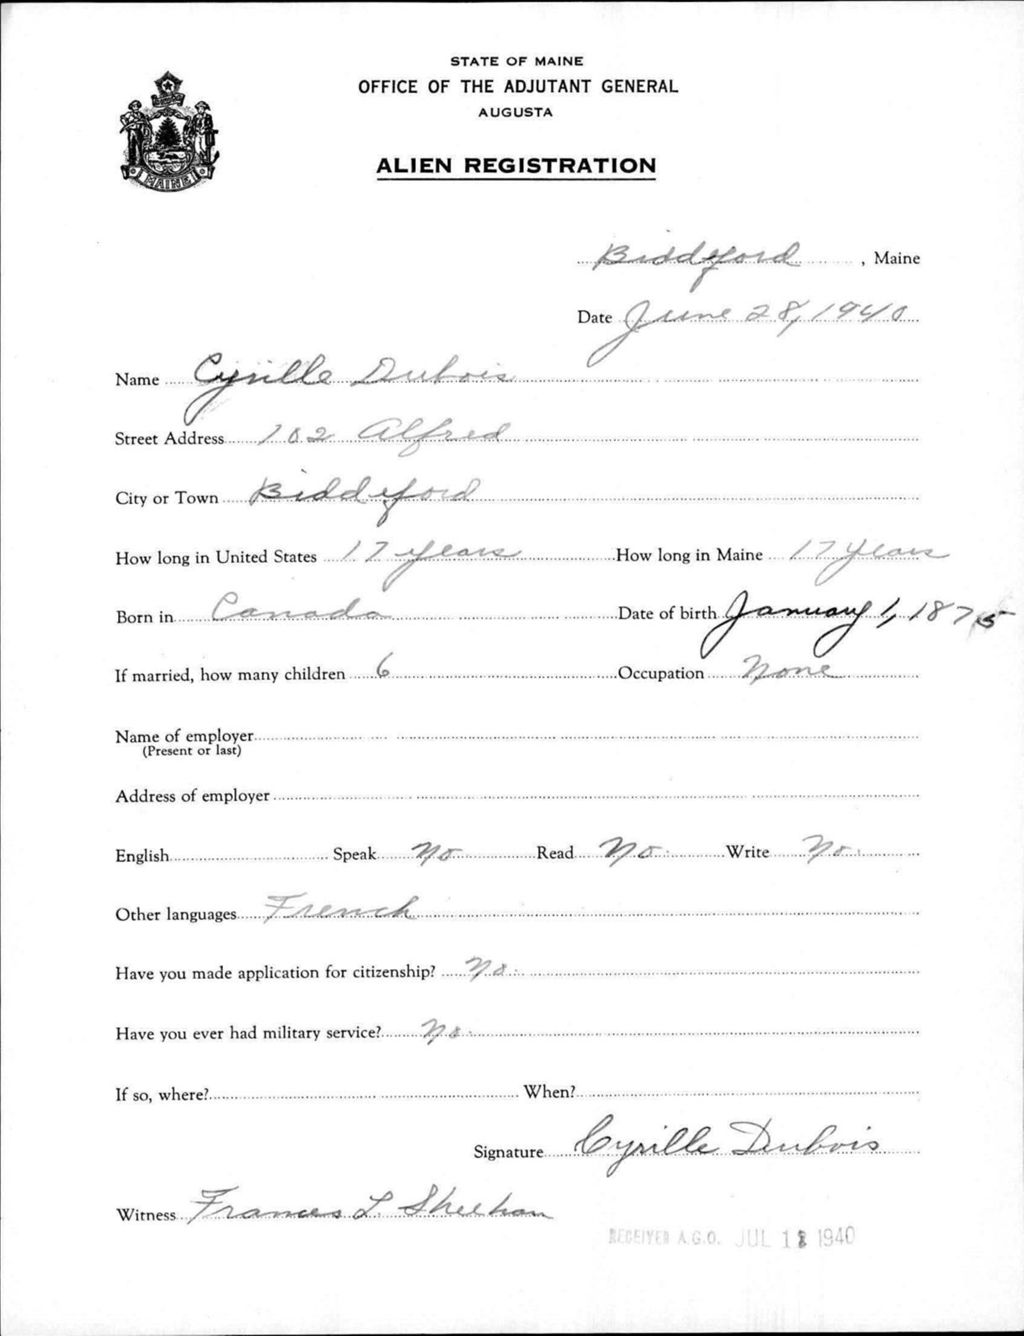 STATE OF MAINE
OFFICE OF THE ADJUTANT GENERAL
AUGUSTA
ALIEN REGISTRATION
MAINE
Biddeford, Maine
Date June 28, 1940
Name Cyrille Dubois
Street Address 102 Alfred
City or Town Biddeford
How long in United States 17 years How long in Maine 17 years
Born in Canada Date of birth January 1, 1875
If married, how many children 6 Occupation None
Name of employer
(Present or last)
Address of employer
English Speak No Read No Write No
Other languages French
Have you made application for citizenship? No
Have you ever had military service? No
If so, where? When?
Signature Cyrille Dubois
Witness Frances L Sheehan
RECEIVED A.G.O. JUL 1940